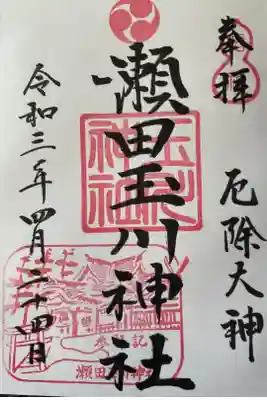 奉拝
厄除大神
瀬田玉川神社
令和三年四月二十四日
玉川神社
参拝記念
瀬田玉川神社